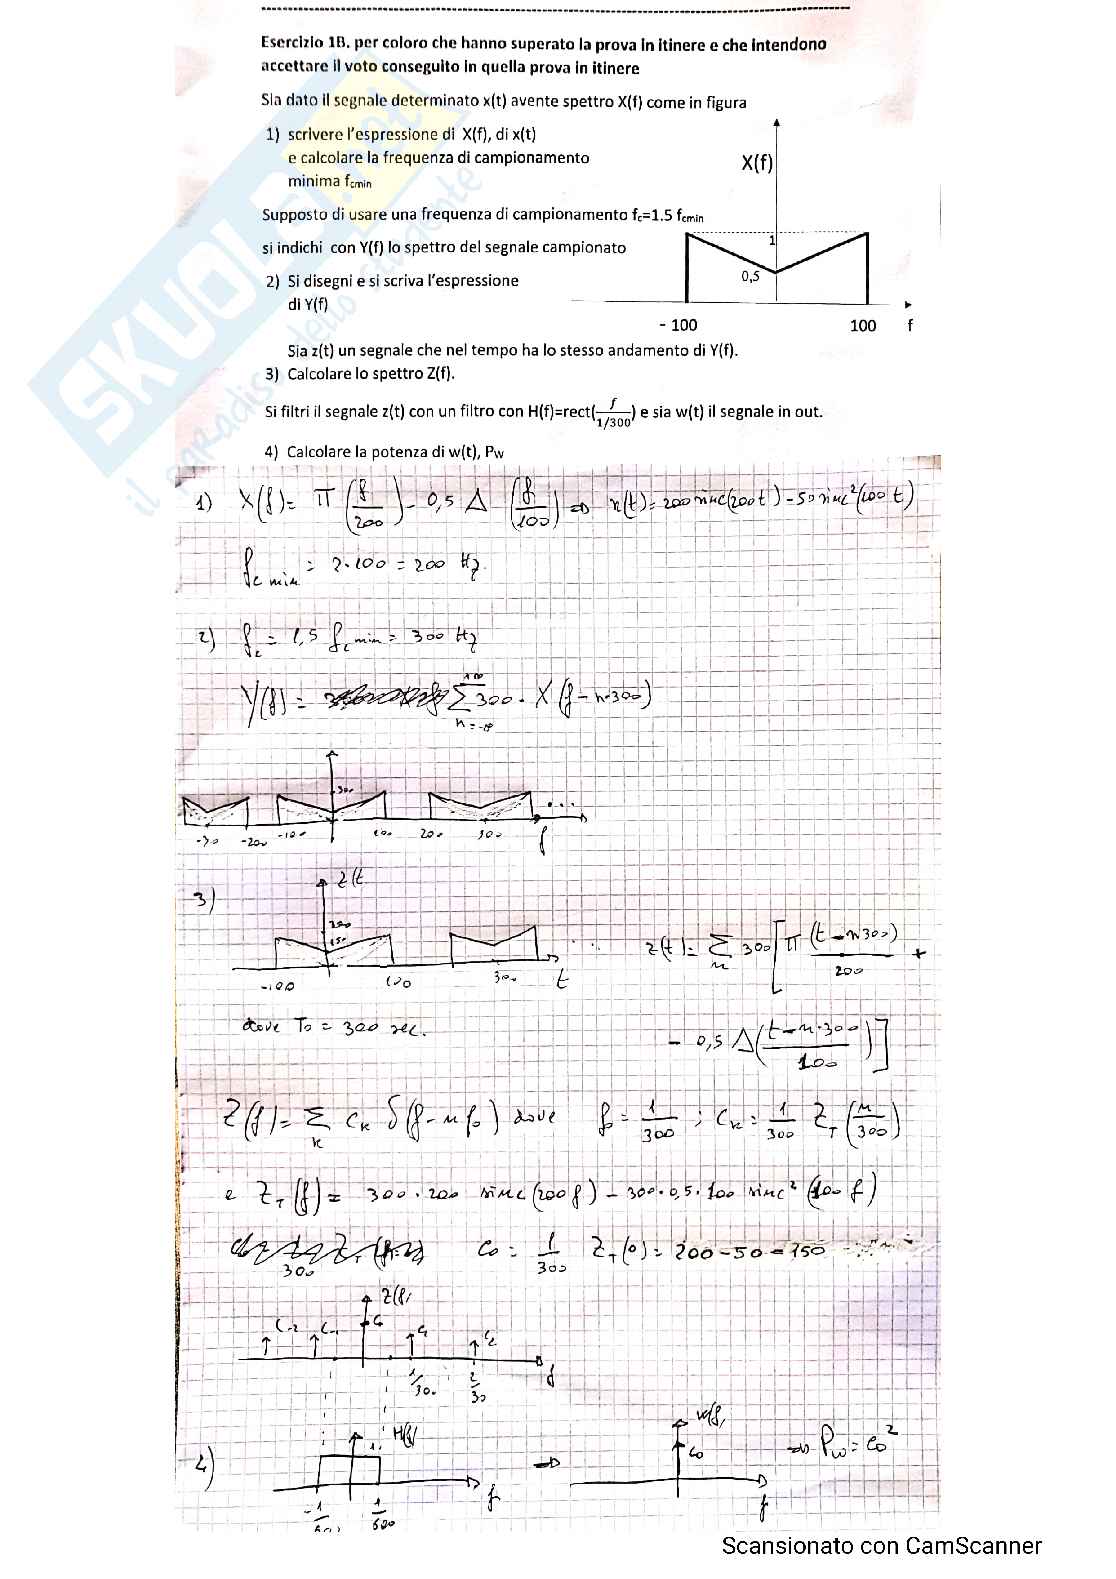 Esercizio 1B. per coloro che hanno superato la prova in itinere e che intendono
accettare il voto conseguito in quella prova in itinere
Sia dato il segnale determinato x(t) avente spettro X(f) come in figura
1) scrivere l'espressione di X(f), di x(t)
e calcolare la frequenza di campionamento
minima fcmin
X(f)
Supposto di usare una frequenza di campionamento fc=1.5 fcmin
si indichi con Y(f) lo spettro del segnale campionato
1
0,5
2) Si disegni e si scriva l'espressione
di Y(f)
- 100 100 f
Sia z(t) un segnale che nel tempo ha lo stesso andamento di Y(f).
3) Calcolare lo spettro Z(f).
Si filtri il segnale z(t) con un filtro con H(f)=rect(f/1/300) e sia w(t) il segnale in out.
4) Calcolare la potenza di w(t), Pw
SKUOLA.net
il paradiso dello studente
1) X(f) = Π (f/200) - 0,5 Δ (f/100) ⇒ x(t) = 200 sinc(200t) - 50 sinc²(100 t)
fc min = 2·100 = 200 Hz.
2) fc = 1,5 fc min = 300 Hz
Y(f) = Σ n=-∞ +∞ 300 · X (f - n·300)
300
-200 -100 100 200 300 f
3) z(t
150
-100 100 300 t
z(t) = Σ n 300 [Π (t - n300)/200 +
dove To = 300 sec.
- 0,5 Δ((t - n·300)/100)]
Z(f) = Σ k Ck δ(f - n fo) dove fo = 1/300 ; Ck = 1/300 ZT (n/300)
e ZT(f) = 300·200 sinc(200f) - 300·0,5·100 sinc² (100 f)
300
Co = 1/300 ZT(0) = 200 - 50 = 150
Z(f)
C-2 C-1 Co C1 C2
1/30. 2/30 f
4) H(f)
1
-1/600 1/600 f
⇒
W(f)
Co
f
⇒ Pw = Co²
Scansionato con CamScanner